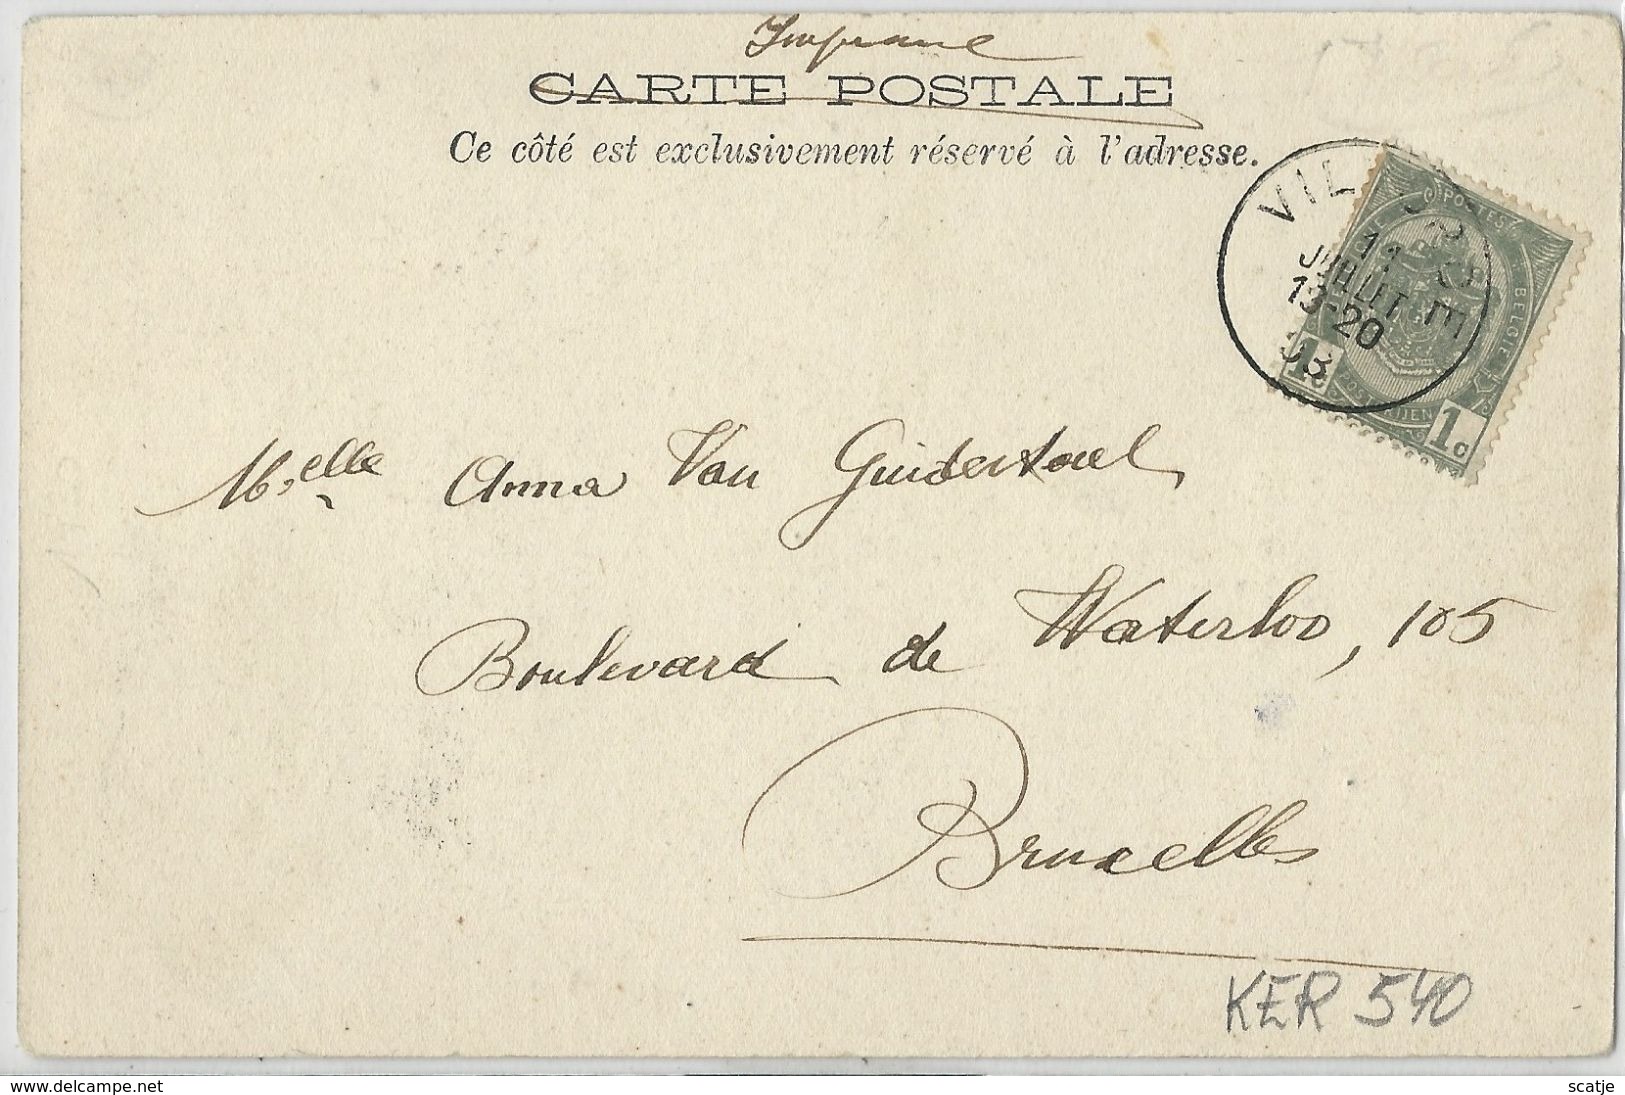 Imprimé
CARTE POSTALE
Ce côté est exclusivement réservé à l'adresse.
11
JUILLET
13-20
POSTES
BELGIQUE
BELGIË
POSTERIJEN
1c
1c
Melle Anna Van
Boulevard de Waterloo, 105
Bruxelles
KER 540
delcampe.net
scatje